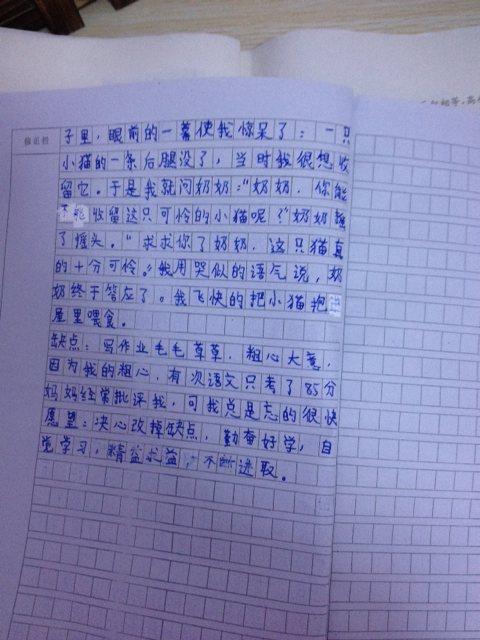 子里,眼前的一幕使我惊呆了:一只
小猫的一条后腿没了,当时我很想收
留它。于是我就问奶奶:“奶奶,你能
不能收留这只可怜的小猫呢?”奶奶摇
了摇头。“求求你了奶奶,这只猫真
的十分可怜。”我用哭似的语气说,奶
奶终于答应了。我飞快的把小猫抱进
屋里喂食。
缺点:写作业毛毛草草,粗心大意,
因为我的粗心,有次语文只考了85分
妈妈经常批评我,可我总是忘的很快
愿望:决心改掉缺点,勤奋好学,自
觉学习,精益求益,不断进取。